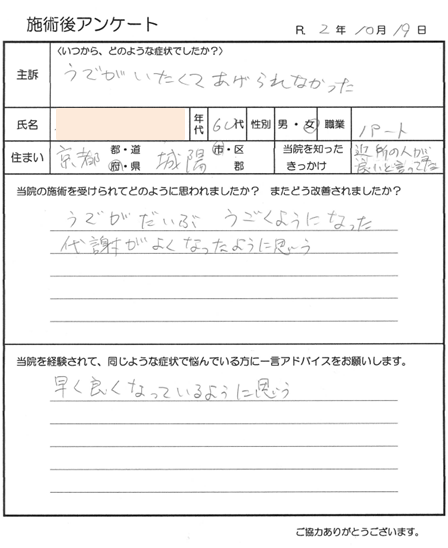 施術後アンケート
R 2年10月19日
主訴
〈いつから、どのような症状でしたか?〉
うでがいたくてあげられなかった
氏名
年代
60代
性別
男・女
職業
パート
住まい
京都
都・道
府・県
城陽
市・区
郡
当院を知った
きっかけ
近所の人が
良いと言ってた
当院の施術を受けられてどのように思われましたか? またどう改善されましたか?
うでがだいぶ うごくようになった
代謝がよくなったように思う
当院を経験されて、同じような症状で悩んでいる方に一言アドバイスをお願いします。
早く良くなっているように思う
ご協力ありがとうございます。